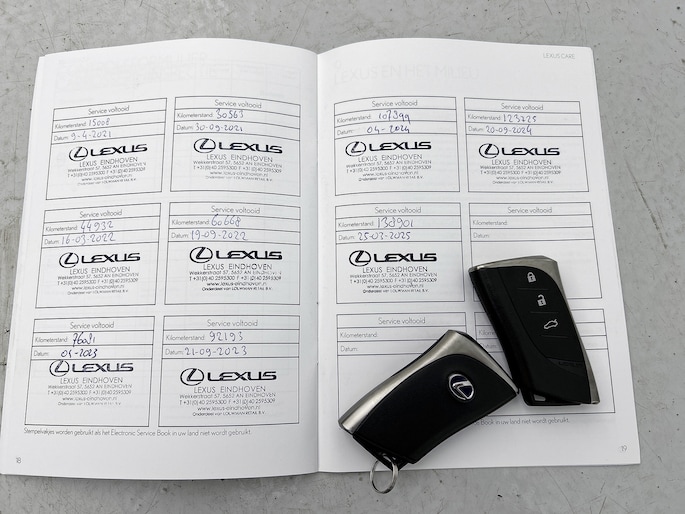 LEXUS CARE
Service voltooid
Kilometerstand: 15008
Datum: 9-4-2021
LEXUS
LEXUS EINDHOVEN
Wekkerstraat 57, 5652 AN EINDHOVEN
T +31(0)40 2595300 F +31(0)40 2595309
www.lexus-eindhoven.nl
Onderdeel van LOUWMAN RETAIL B.V.
Service voltooid
Kilometerstand: 30363
Datum: 30-09-2021
LEXUS
LEXUS EINDHOVEN
Wekkerstraat 57, 5652 AN EINDHOVEN
T +31(0)40 2595300 F +31(0)40 2595309
www.lexus-eindhoven.nl
Onderdeel van LOUWMAN RETAIL B.V.
Service voltooid
Kilometerstand: 44932
Datum: 16-03-2022
LEXUS
LEXUS EINDHOVEN
Wekkerstraat 57, 5652 AN EINDHOVEN
T +31(0)40 2595300 F +31(0)40 2595309
www.lexus-eindhoven.nl
Onderdeel van LOUWMAN RETAIL B.V.
Service voltooid
Kilometerstand: 60668
Datum: 19-09-2022
LEXUS
LEXUS EINDHOVEN
Wekkerstraat 57, 5652 AN EINDHOVEN
T +31(0)40 2595300 F +31(0)40 2595309
www.lexus-eindhoven.nl
Onderdeel van LOUWMAN RETAIL B.V.
Service voltooid
Kilometerstand:
Datum: 03-2023
LEXUS
LEXUS EINDHOVEN
Wekkerstraat 57, 5652 AN EINDHOVEN
T +31(0)40 2595300 F +31(0)40 2595309
www.lexus-eindhoven.nl
Onderdeel van LOUWMAN RETAIL B.V.
Service voltooid
Kilometerstand: 92193
Datum: 21-09-2023
LEXUS
LEXUS EINDHOVEN
Wekkerstraat 57, 5652 AN EINDHOVEN
T +31(0)40 2595300 F +31(0)40 2595309
www.lexus-eindhoven.nl
Onderdeel van LOUWMAN RETAIL B.V.
Stempelvakjes worden gebruikt als het Electronic Service Book in uw land niet wordt gebruikt.
18
Service voltooid
Kilometerstand: 107399
Datum: 04-2024
LEXUS
LEXUS EINDHOVEN
Wekkerstraat 57, 5652 AN EINDHOVEN
T +31(0)40 2595300 F +31(0)40 2595309
www.lexus-eindhoven.nl
Onderdeel van LOUWMAN RETAIL B.V.
Service voltooid
Kilometerstand: 123725
Datum: 20-09-2024
LEXUS
LEXUS EINDHOVEN
Wekkerstraat 57, 5652 AN EINDHOVEN
T +31(0)40 2595300 F +31(0)40 2595309
www.lexus-eindhoven.nl
Onderdeel van LOUWMAN RETAIL B.V.
Service voltooid
Kilometerstand: 138901
Datum: 25-03-2025
LEXUS
LEXUS EINDHOVEN
Wekkerstraat 57, 5652 AN EINDHOVEN
T +31(0)40 2595300 F +31(0)40 2595309
www.lexus-eindhoven.nl
Onderdeel van LOUWMAN RETAIL B.V.
Service voltooid
Kilometerstand:
Datum:
Service voltooid
Kilometerstand:
Datum:
Book in uw land niet wordt gebruikt.
19